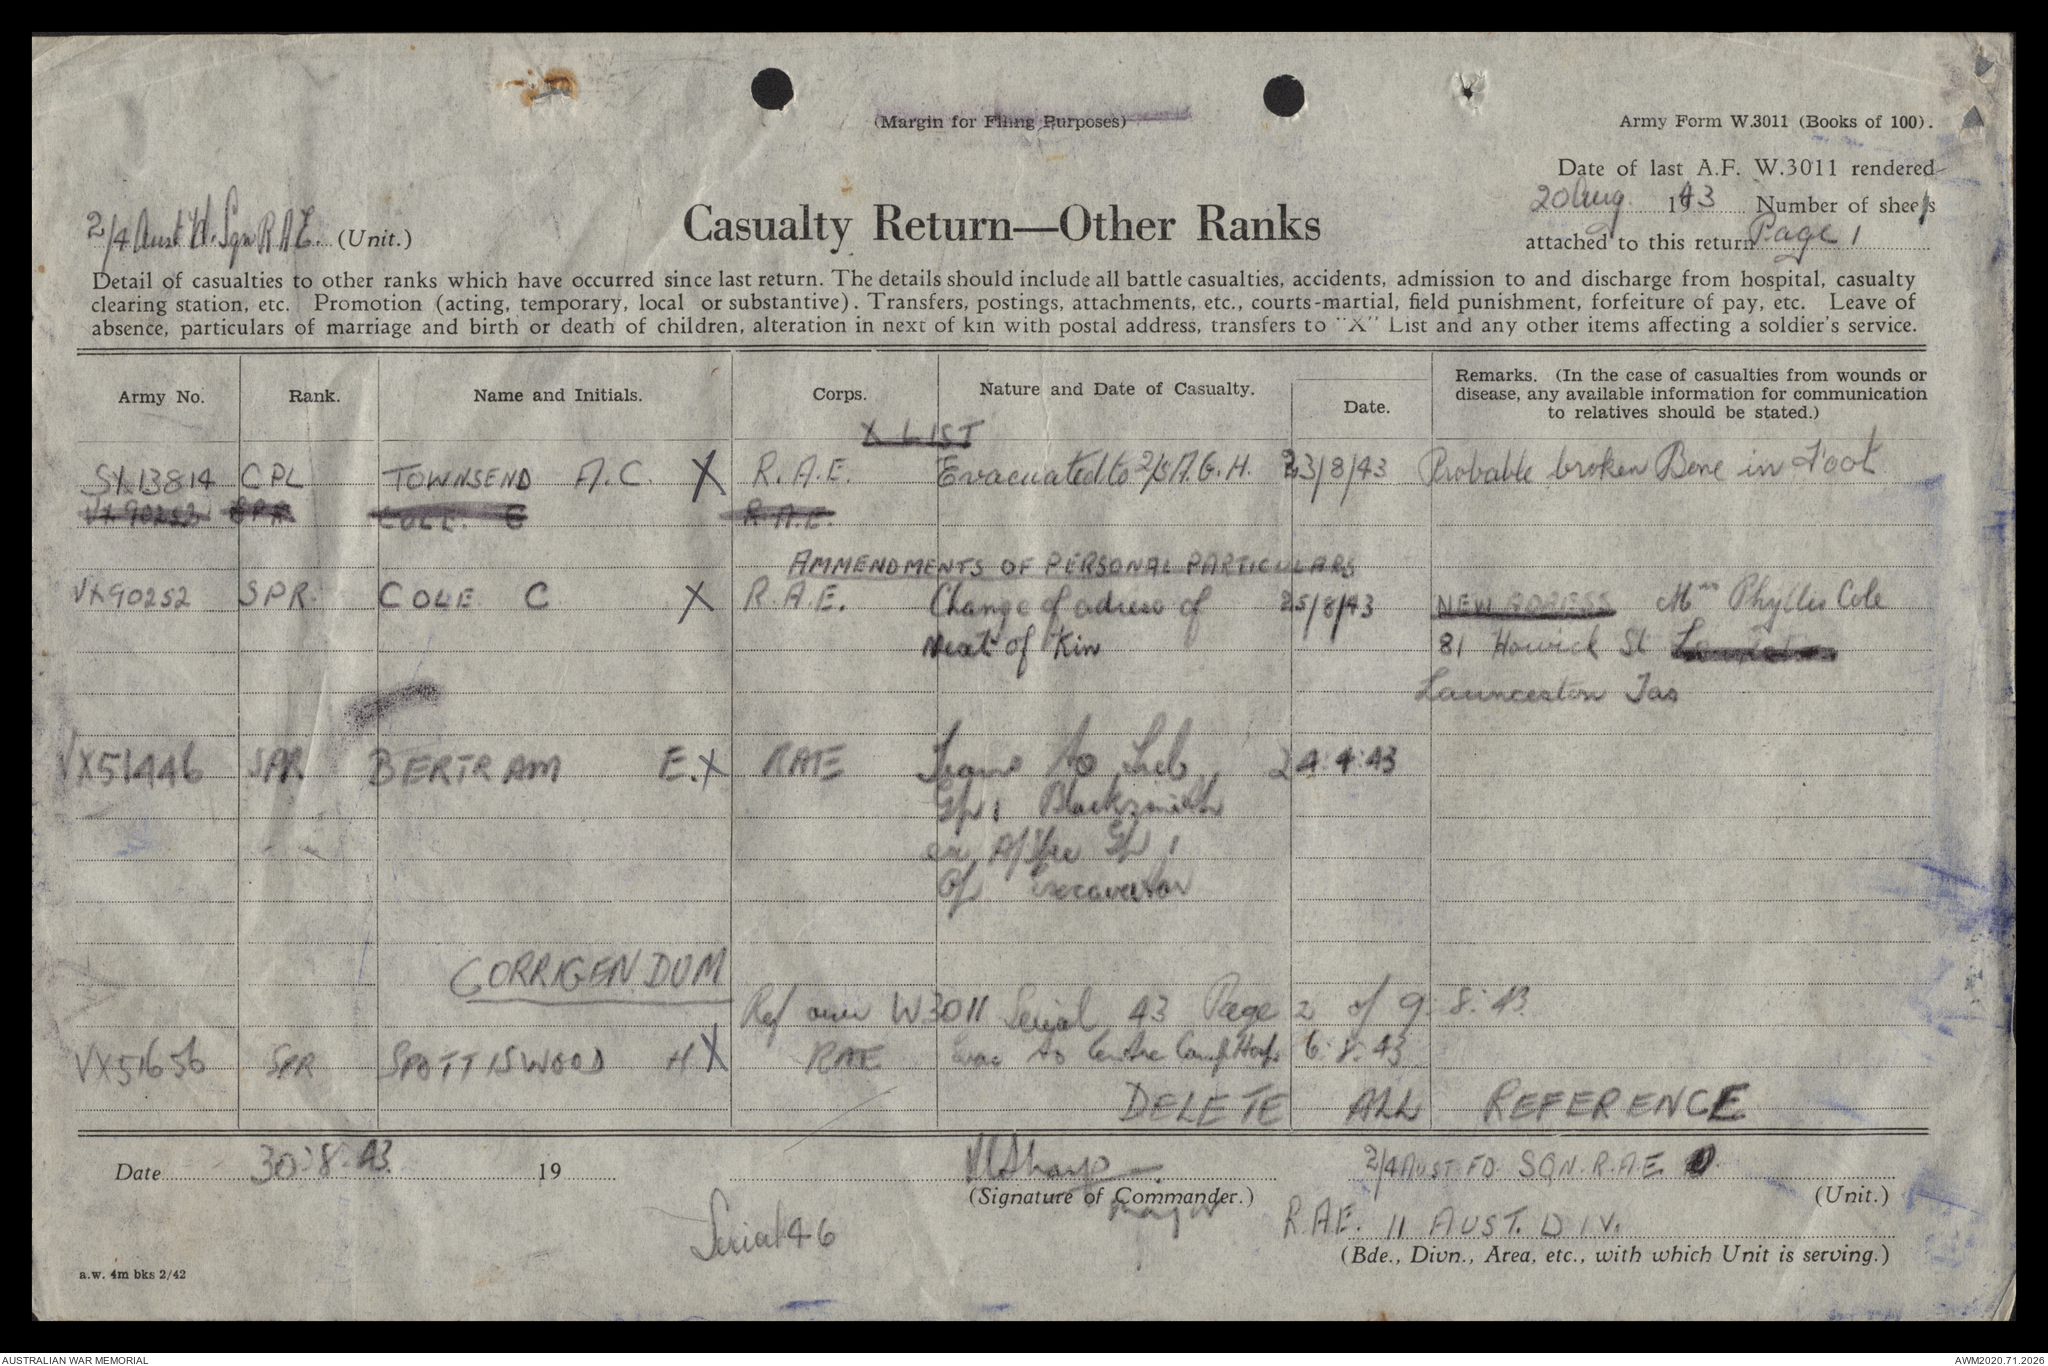 (Margin for Filing Purposes)
Army Form W.3011 (Books of 100).
Date of last A.F. W.3011 rendered
20 Aug 1943 Number of sheets
2/4 Aust Sqn R.A.E. (Unit.)
Casualty Return—Other Ranks
attached to this return Page 1
Detail of casualties to other ranks which have occurred since last return. The details should include all battle casualties, accidents, admission to and discharge from hospital, casualty
clearing station, etc. Promotion (acting, temporary, local or substantive). Transfers, postings, attachments, etc., courts-martial, field punishment, forfeiture of pay, etc. Leave of
absence, particulars of marriage and birth or death of children, alteration in next of kin with postal address, transfers to "X" List and any other items affecting a soldier's service.
Army No. Rank. Name and Initials. Corps. Nature and Date of Casualty. Date. Remarks. (In the case of casualties from wounds or
disease, any available information for communication
to relatives should be stated.)
X LIST
SX13814 CPL TOWNSEND A.C. X R.A.E. Evacuated to 2/5 A.G.H. 23/8/43 Probable broken Bone in Foot
VX90252 SPR COLE C R.A.E.
AMMENDMENTS OF PERSONAL PARTICULARS
VX90252 SPR. COLE C X R.A.E. Change of adress of 25/8/43 NEW ADRESS Mrs Phyllis Cole
Next of Kin 81 Howick St
Launceston Tas
VX51446 SPR BERTRAM E. X RAE Trans to 24.4.43
Gp 1 Blacksmith
ex Gp 1
Op Excavator
CORRIGENDUM
Ref our W3011 Serial 43 Page 2 of 9.8.43
VX51656 SPR SPOTTISWOOD H X RAE Evac to Centre Camp Hosp 6.8.43
DELETE ALL REFERENCE
Date 30.8.43 19
Sharp
2/4 AUST FD. SQN. R.A.E.
(Signature of Commander.)
(Unit.)
Major
R.A.E. 11 AUST. DIV.
Serial 46
(Bde., Divn., Area, etc., with which Unit is serving.)
a.w. 4m bks 2/42
AUSTRALIAN WAR MEMORIAL
AWM2020.71.2026